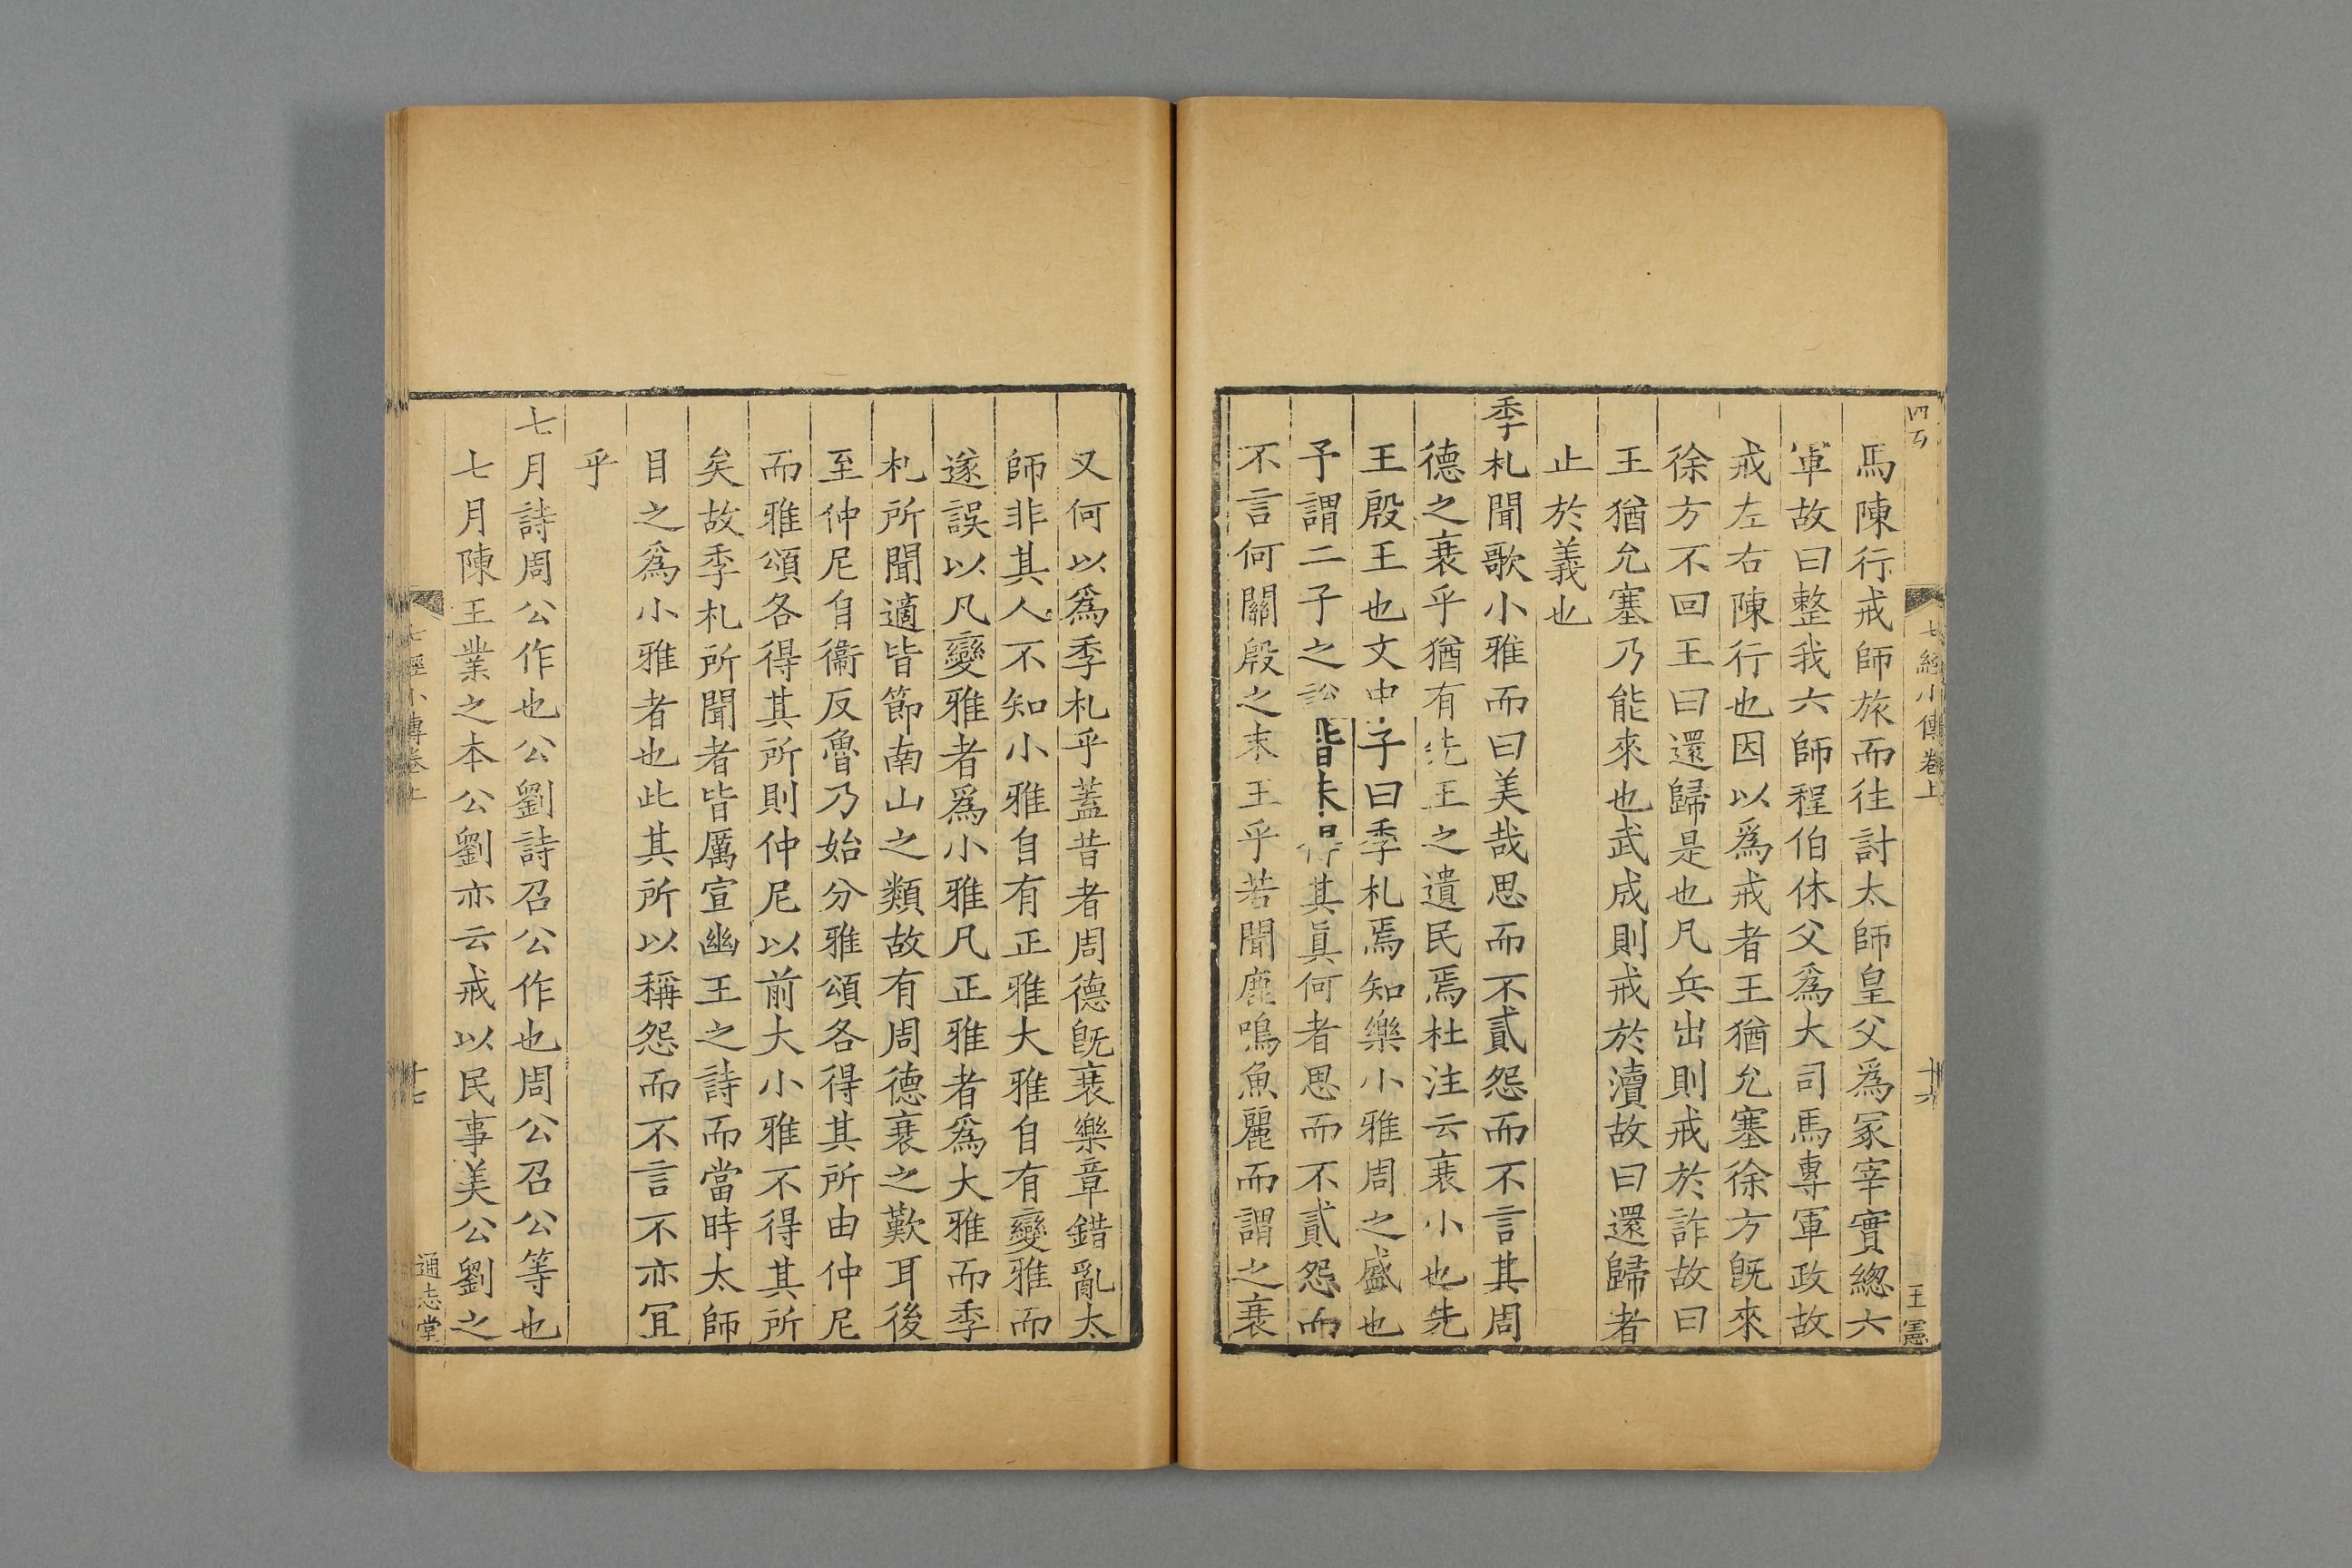 七經小傳卷上
十六
王憲
馬陳行戒師旅而往討太師皇父爲冢宰實緫六
軍故曰整我六師程伯休父爲大司馬專軍政故
戒左右陳行也因以爲戒者王猶允塞徐方旣來
徐方不回王曰還歸是也凡兵出則戒於詐故曰
王猶允塞乃能來也武成則戒於瀆故曰還歸者
止於義也
季札聞歌小雅而曰美哉思而不貳怨而不言其周
德之衰乎猶有先王之遺民焉杜注云衰小也先
王殷王也文中子曰季札焉知樂小雅周之盛也
予謂二子之訟皆未得其眞何者思而不貳怨而
不言何關殷之末王乎若聞鹿鳴魚麗而謂之衰
又何以爲季札乎蓋昔者周德旣衰樂章錯亂太
師非其人不知小雅自有正雅大雅自有變雅而
遂誤以凡變雅者爲小雅凡正雅者爲大雅而季
札所聞適皆節南山之類故有周德衰之歎耳後
至仲尼自衞反魯乃始分雅頌各得其所由仲尼
而雅頌各得其所則仲尼以前大小雅不得其所
矣故季札所聞者皆厲宣幽王之詩而當時太師
目之爲小雅者也此其所以稱怨而不言不亦冝
乎
七月詩周公作也公劉詩召公作也周公召公等也
七月陳王業之本公劉亦云戒以民事美公劉之
七經小傳卷上
十七
通志堂